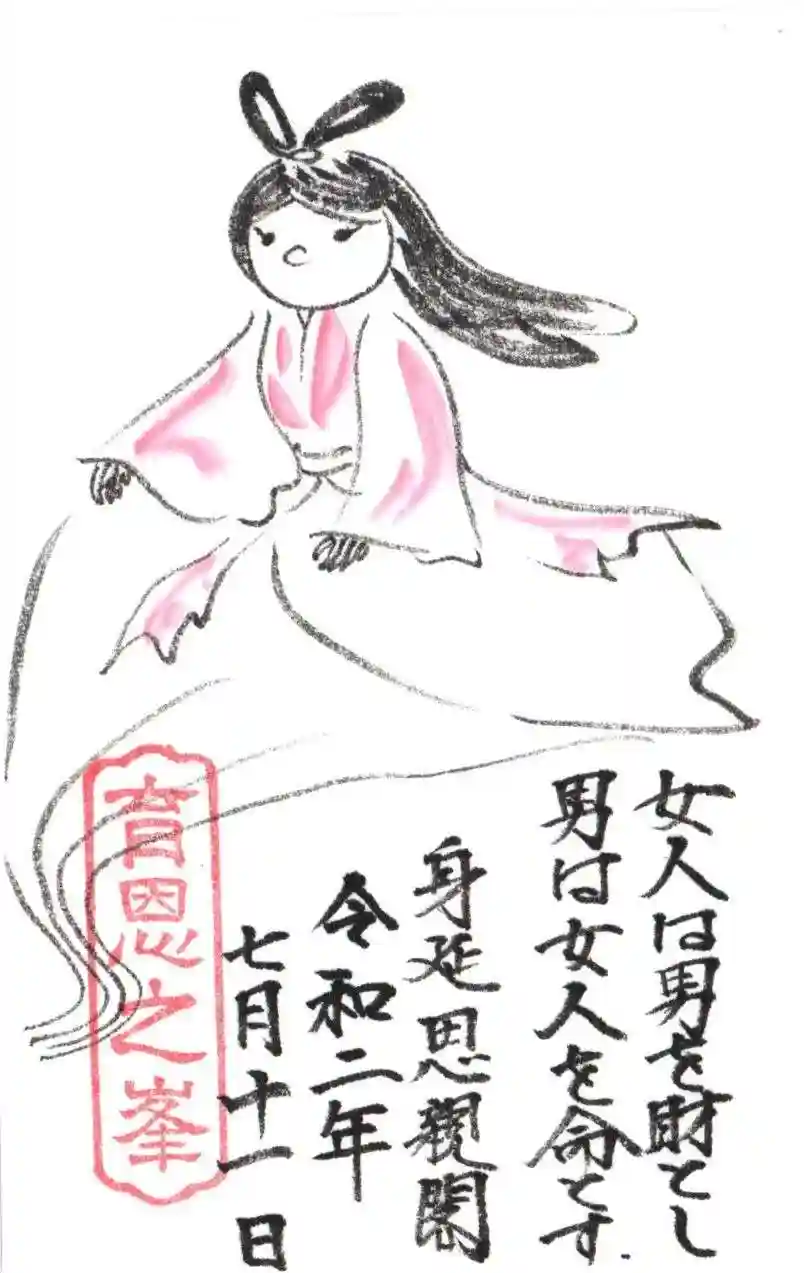 女人は男を財とし
男は女人を命とす.
身延 思親閣
令和二年
七月十一日
育恩之峯